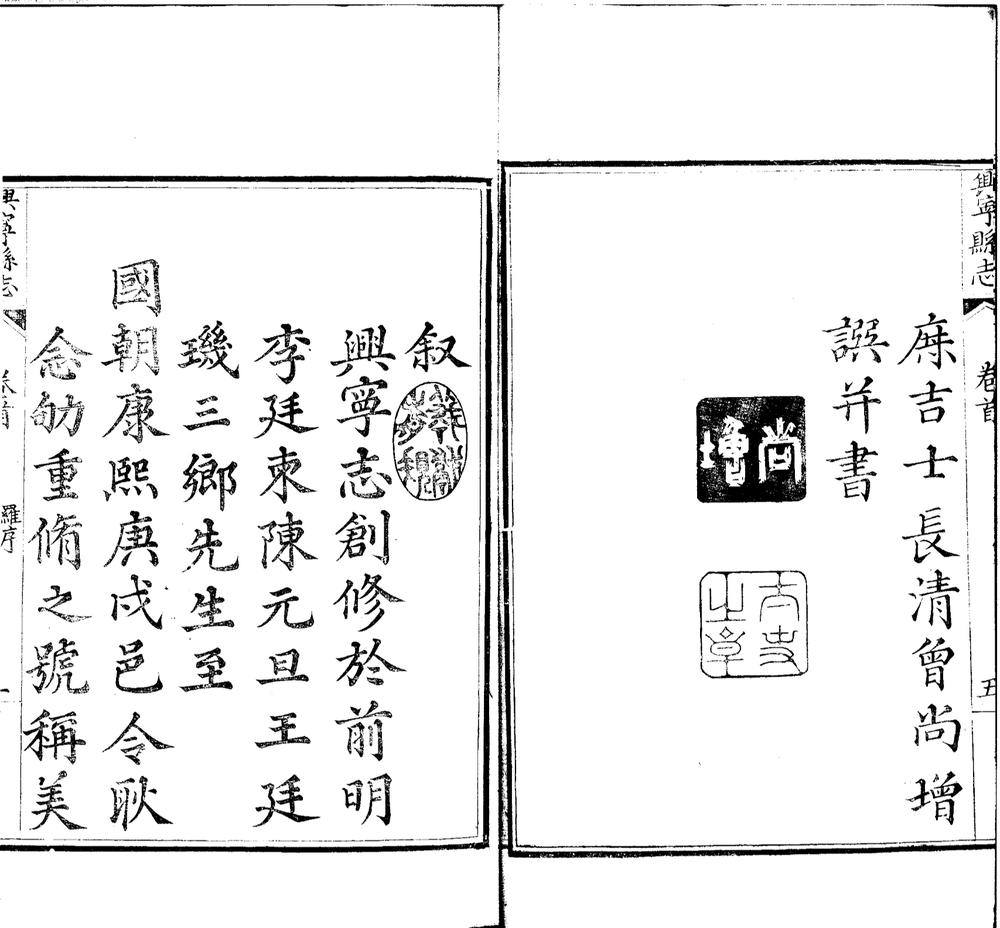 興寧縣志
卷首
五
庶吉士長清曾尚增
譔并書
尚增
太史之章
叙
興寧志創修於前明
李廷柬陳元旦王廷
璣三鄉先生至
國朝康熙庚戌邑令耿
念劬重脩之號稱美
興寧縣志
卷首
羅序
一